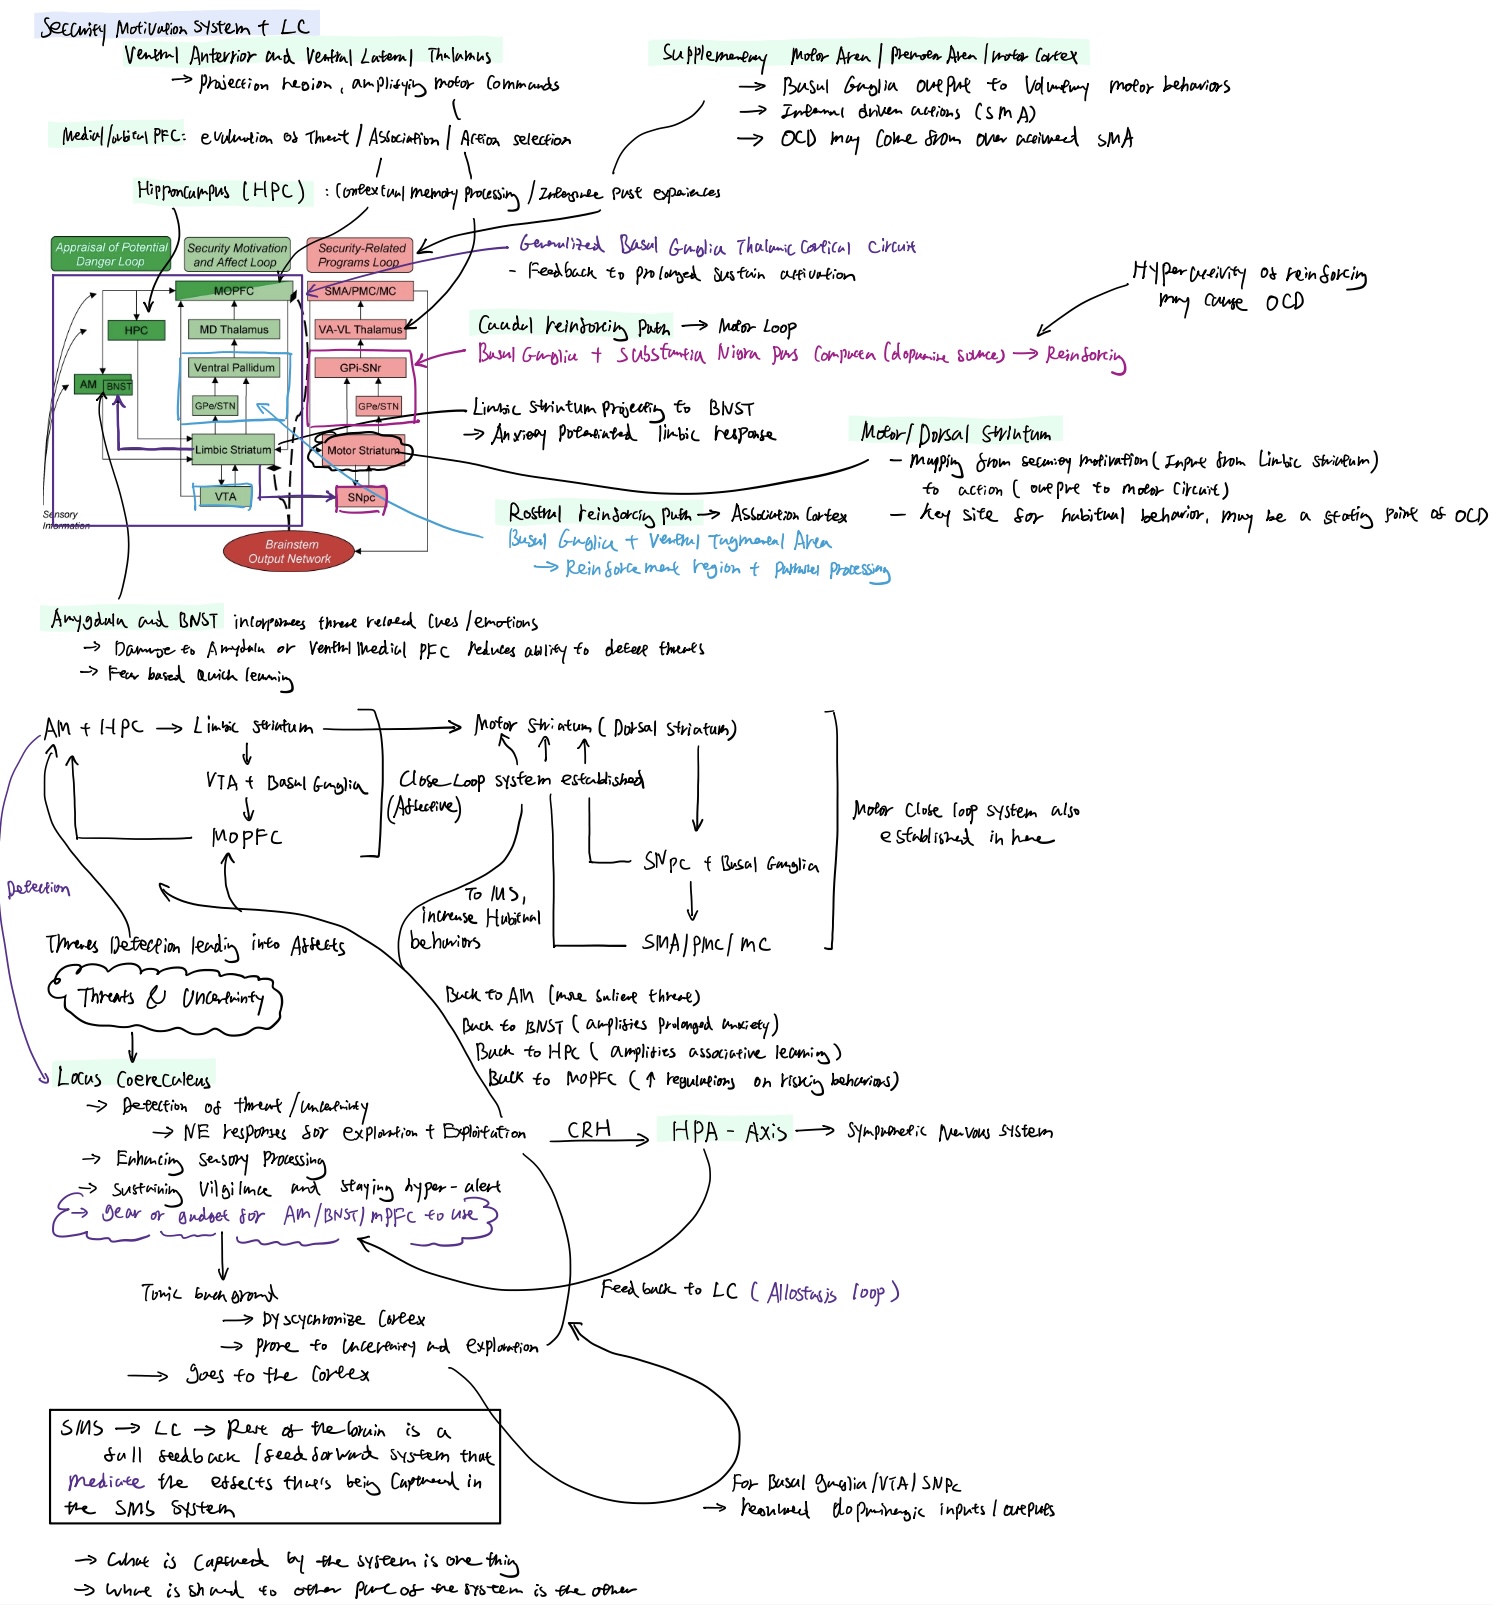 Security Motivation System + LC
Ventral Anterior and Ventral Lateral Thalamus
→ Projection region, amplifying motor commands
Supplementary Motor Area / Premotor Area / motor Cortex
→ Basal Ganglia output to Voluntary motor behaviors
→ Internal driven actions (SMA)
→ OCD may come from over activated SMA
Medial/orbital PFC: evaluation of Threat / Association / Action selection
Hippocampus (HPC) : Contextual memory processing / Integrate past expriences
Appraisal of Potential
Danger Loop
Security Motivation
and Affect Loop
Security-Related
Programs Loop
MOPFC
SMA/PMC/MC
HPC
MD Thalamus
VA-VL Thalamus
Ventral Pallidum
GPi-SNr
AM
BNST
GPe/STN
GPe/STN
Limbic Striatum
Motor Striatum
VTA
SNpc
Sensory
Information
Brainstem
Output Network
Generalized Basal Ganglia Thalamic Cortical Circuit
- Feedback to prolonged sustain activation
Hyperactivity of reinforcing
may cause OCD
Caudal reinforcing path → Motor Loop
Basal Ganglia + Substantia Nigra pars compacta (dopamine source) → Reinforcing
Limbic Striatum projecting to BNST
→ Anxiety potentiated limbic response
Motor/Dorsal Striatum
- Mapping from security motivation (Input from Limbic striatum)
to action (output to motor circuit)
- Key site for habitual behavior, may be a stating point of OCD
Rostral reinforcing path → Association Cortex
Basal Ganglia + Ventral Tagmental Area
→ Reinforcement region + Parallel Processing
Amygdala and BNST incorporates threat related cues/emotions
→ Damage to Amydala or Ventral Medial PFC reduces ability to detect threats
→ Fear based quick learning
AM + HPC → Limbic striatum → Motor Striatum (Dorsal Striatum)
VTA + Basal Ganglia
Close Loop system established
(Affective)
MOPFC
Motor Close loop system also
established in here
SNpc + Basal Ganglia
Detection
To MS,
increase Habitual
behaviors
SMA/PMC/MC
Threats Detection leading into Affects
Threats & Uncertainty
Back to AM (more salient threat)
Back to BNST (amplifies prolonged anxiety)
Back to HPC (amplifies associative learning)
Back to MOPFC (↑ regulations on risking behaviors)
Locus Coereculeus
→ Detection of threat/uncertainty
→ NE responses for exploration + Exploitation
CRH
HPA - Axis → Sympathetic Nervous System
→ Enhancing Sensory Processing
→ Sustaining Vilgilance and staying hyper-alert
→ gear or gudget for AM/BNST/mPFC to use
Tonic background
Feedback to LC (Allostasis loop)
→ Dyscychronize Cortex
→ Prone to uncertainty and exploration
→ goes to the Cortex
SMS → LC → Rest of the brain is a
full feedback / feedforward system that
mediate the effects that's being Captured in
the SMS System
For Basal ganglia/VTA/SNpc
→ dopminergic inputs/outputs
→ What is captured by the system is one thing
→ What is shared to other part of the system is the other